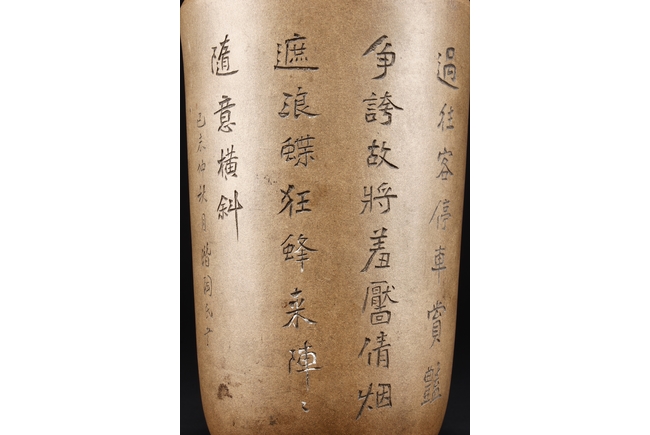 過往客停車賞豔
争誇故將羞靨倩烟
遮浪蝶狂蜂来陣〻
隨意横斜
己未仲秋月